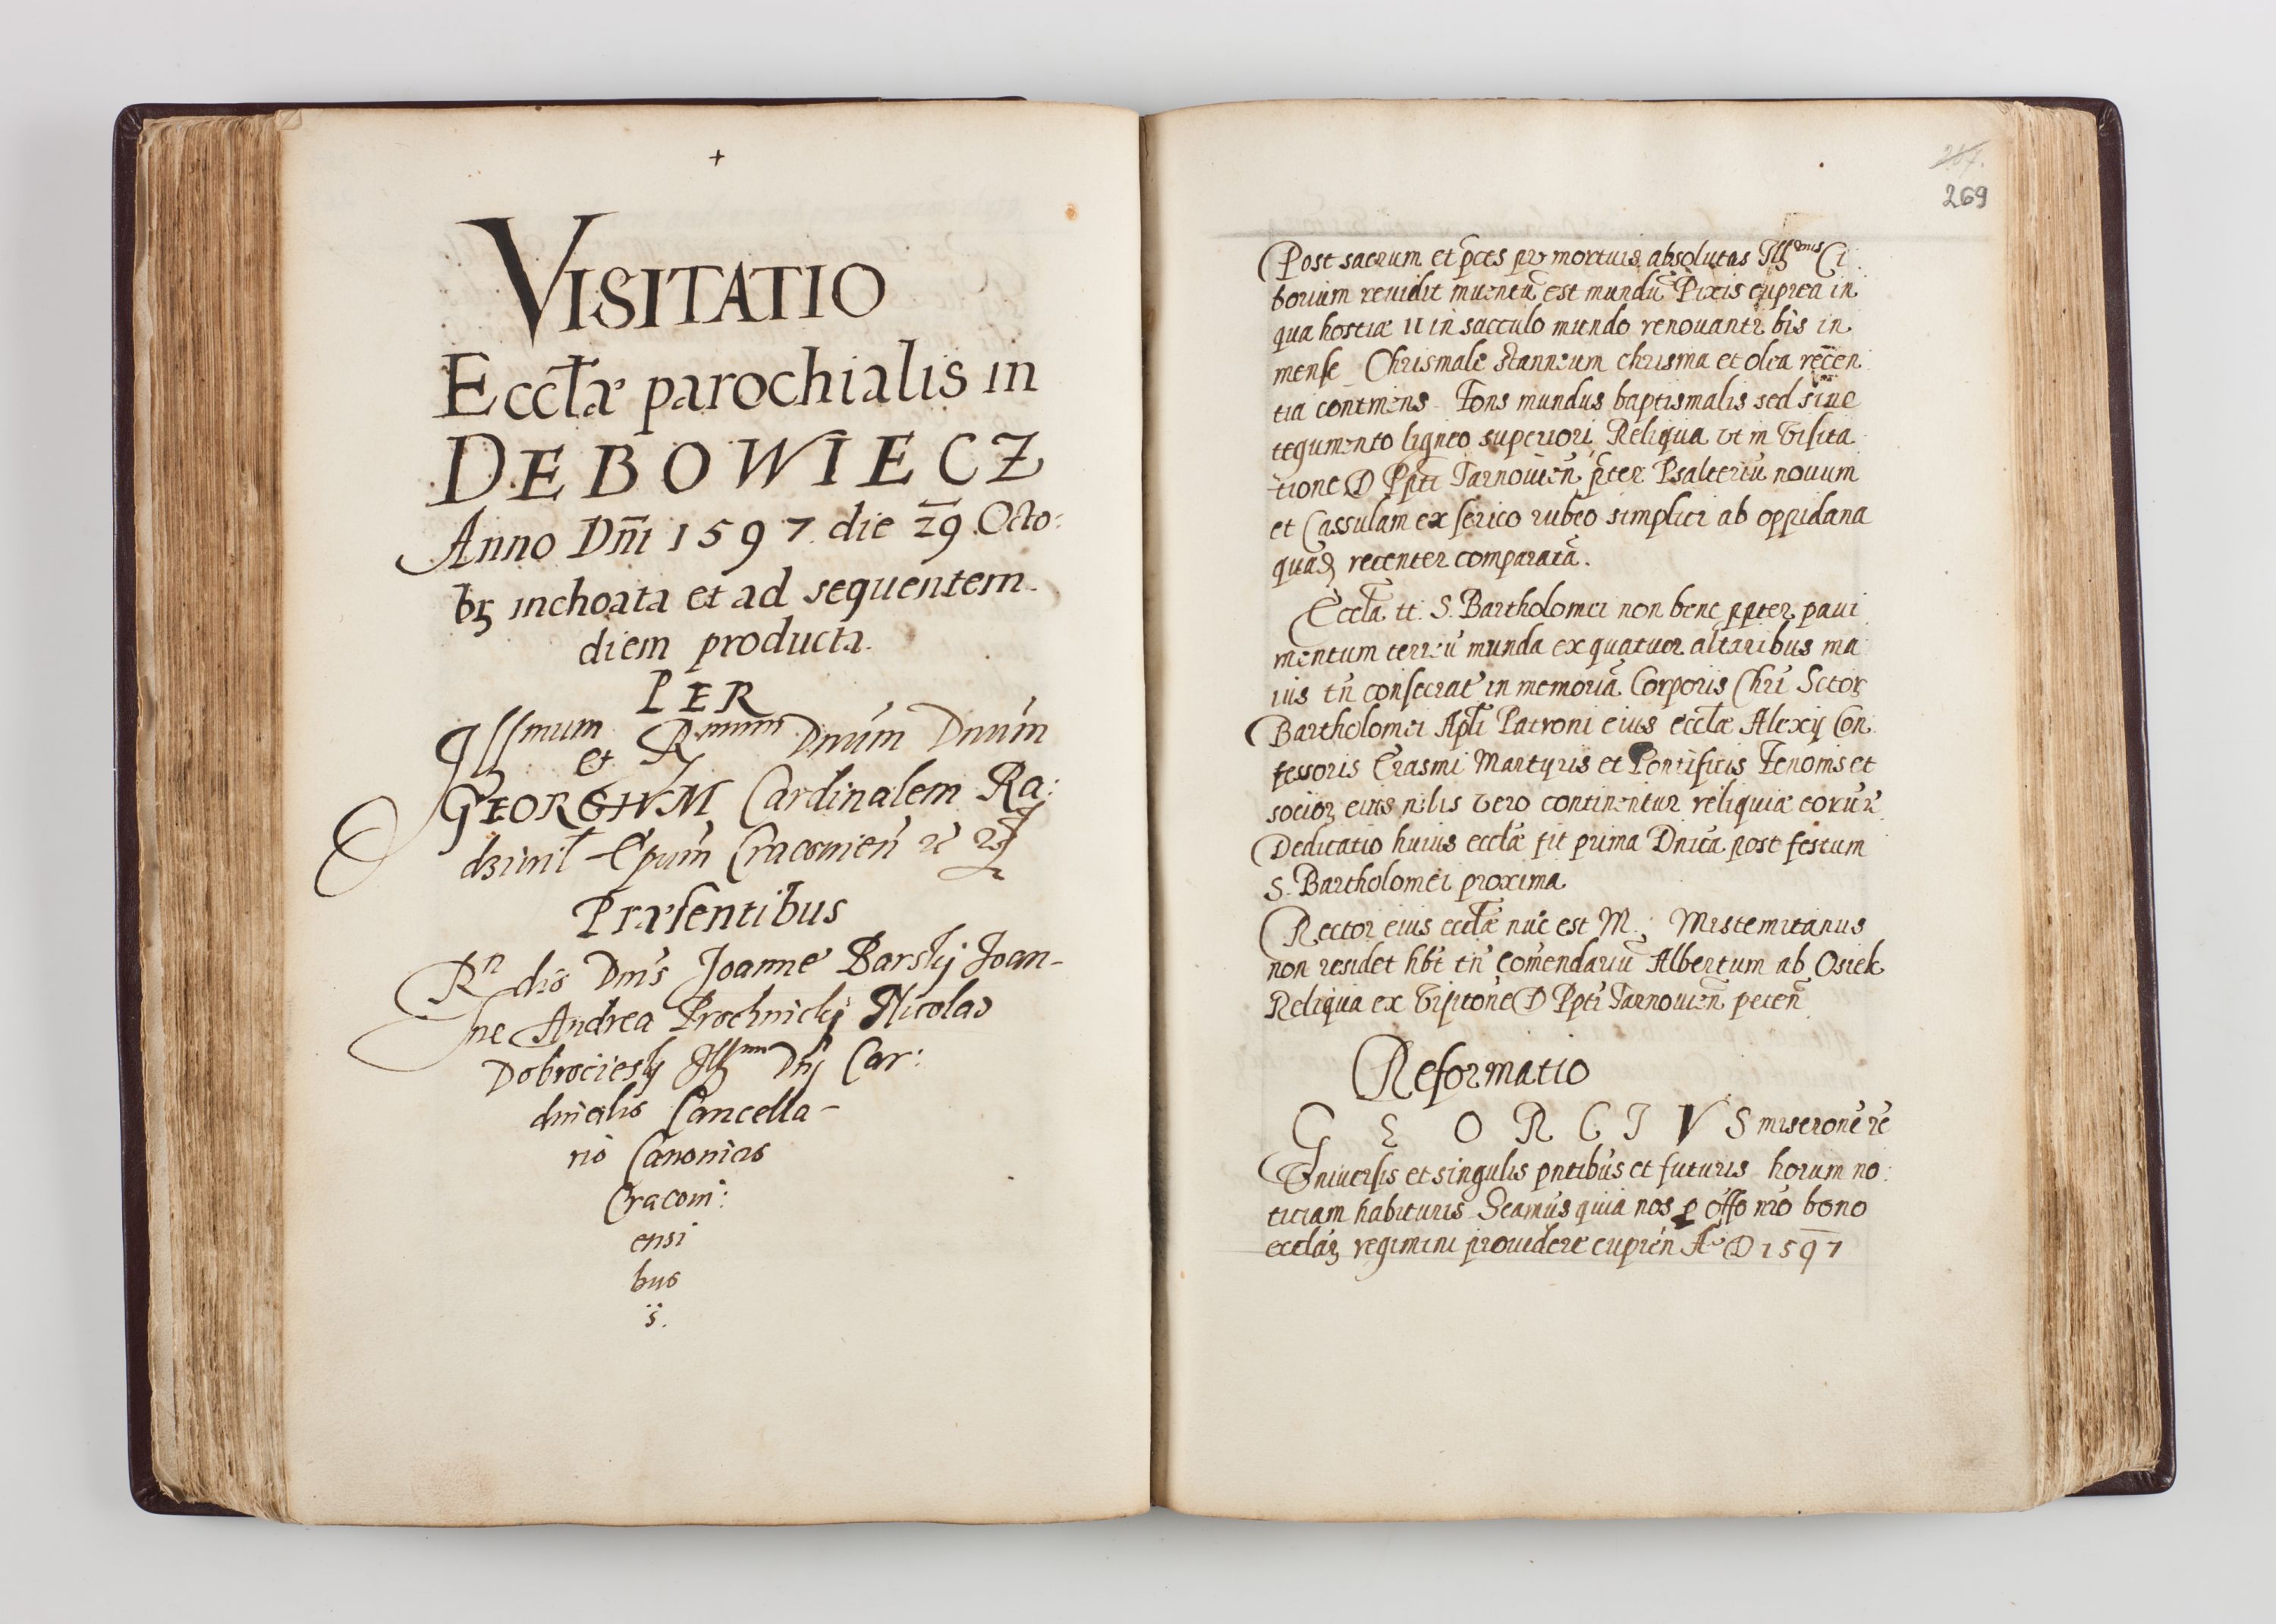 +
VISITATIO
Eccl̃æ parochialis in
DEBOWIECZ
Anno Dñi 1597 die 29 Octo:
bꝫ inchoata et ad sequentem
diem producta.
PER
Illmum et Rmum Dnum Dnum
GEORGIVM Cardinalem Ra:
dziuil Epum Cracouien̄
Præsentibus
Rndis Dnis Joanne Barskij Joan-
ne Andrea Prochnickij Nicolao
Dobrocieskij Illmi Dnj Car:
dinalis Cancella-
rio Canonicis
Cracoui:
ensi
bus
s̈.
267.
269
Post sacrum et p̃ces pro mortuis absolutas Illmus Ci
borium reuidit inuentũ est mundũ Pixis cuprea in
qua hostiæ 11 in sacculo mundo renouantr bis in
mense Chrismale stanneum chrisma et olea recen
tia continens Fons mundus baptismalis sed sine
tegumento ligneo superiori Reliqua vt in visita
tione D Ppti Tarnouien̄ p̃ter Psalteriũ nouum
et Cassulam ex serico rubeo simplici ab oppidana
quadꝫ recenter comparatã.
Eccl̃a tt. S. Bartholomei non bene ppter paui
mentum terreũ munda ex quatuor altaribus ma
ius tñ consecrat' in memoriã Corporis Chri Sctor
Bartholomei Apli Patroni eius eccl̃æ Alexij Con
fessoris Erasmi Martyris et Pontificis Fenonis et
socior eius vero continentur reliquiæ eorũ
Dedicatio huius eccl̃æ fit prima Dnica post festum
S. Bartholomei proxima
Rector eius eccl̃æ nũc est M. Mistemitanus
non residet hbt tñ com̃endariũ Albertum ab Osiek
Reliqua ex visitone D Ppti Tarnouien̄ peten̄
Reformatio
GEORGIVS miserone
Vniuersis et singulis pntibus et futuris horum no
titiam habituris Scamus quia nos p offo nro bono
eccl̃aꝝ regimini prouidere cupien̄ Ao D 1597